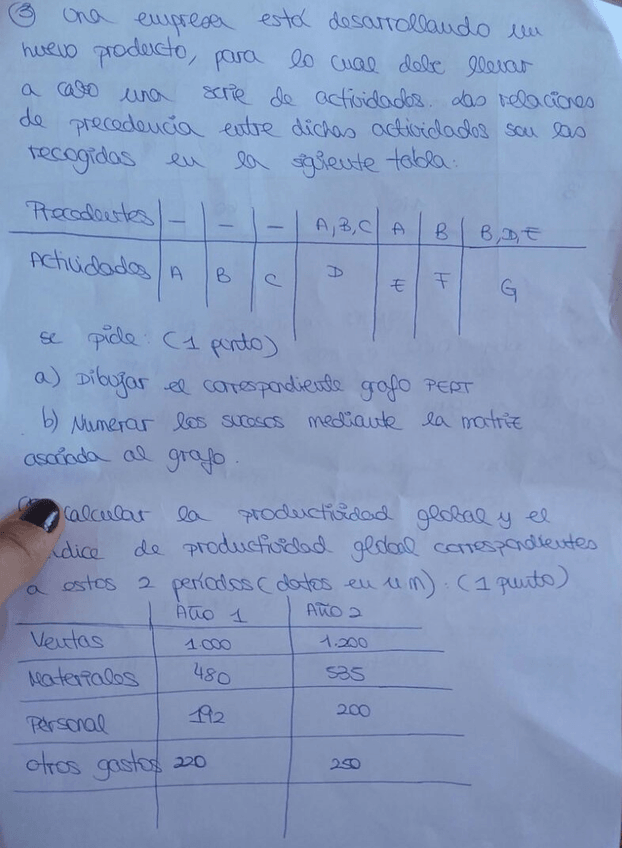 ③ Una empresa está desarrollando un
nuevo producto, para lo cual debe llevar
a cabo una serie de actividades. Las relaciones
de precedencia entre dichas actividades son las
recogidas en la siguiente tabla:
Precedentes | - | - | - | A, B, C | A | B | B, D, E
Actividades | A | B | C | D | E | F | G
se pide: (1 punto)
a) Dibujar el correspondiente grafo PERT
b) Numerar los sucesos mediante la matriz
asociada al grafo.
calcular la productividad global y el
índice de productividad global correspondientes
a estos 2 períodos (datos en u m): (1 punto)
Año 1 | Año 2
Ventas | 1.000 | 1.200
Materiales | 480 | 535
Personal | 192 | 200
otros gastos | 220 | 250